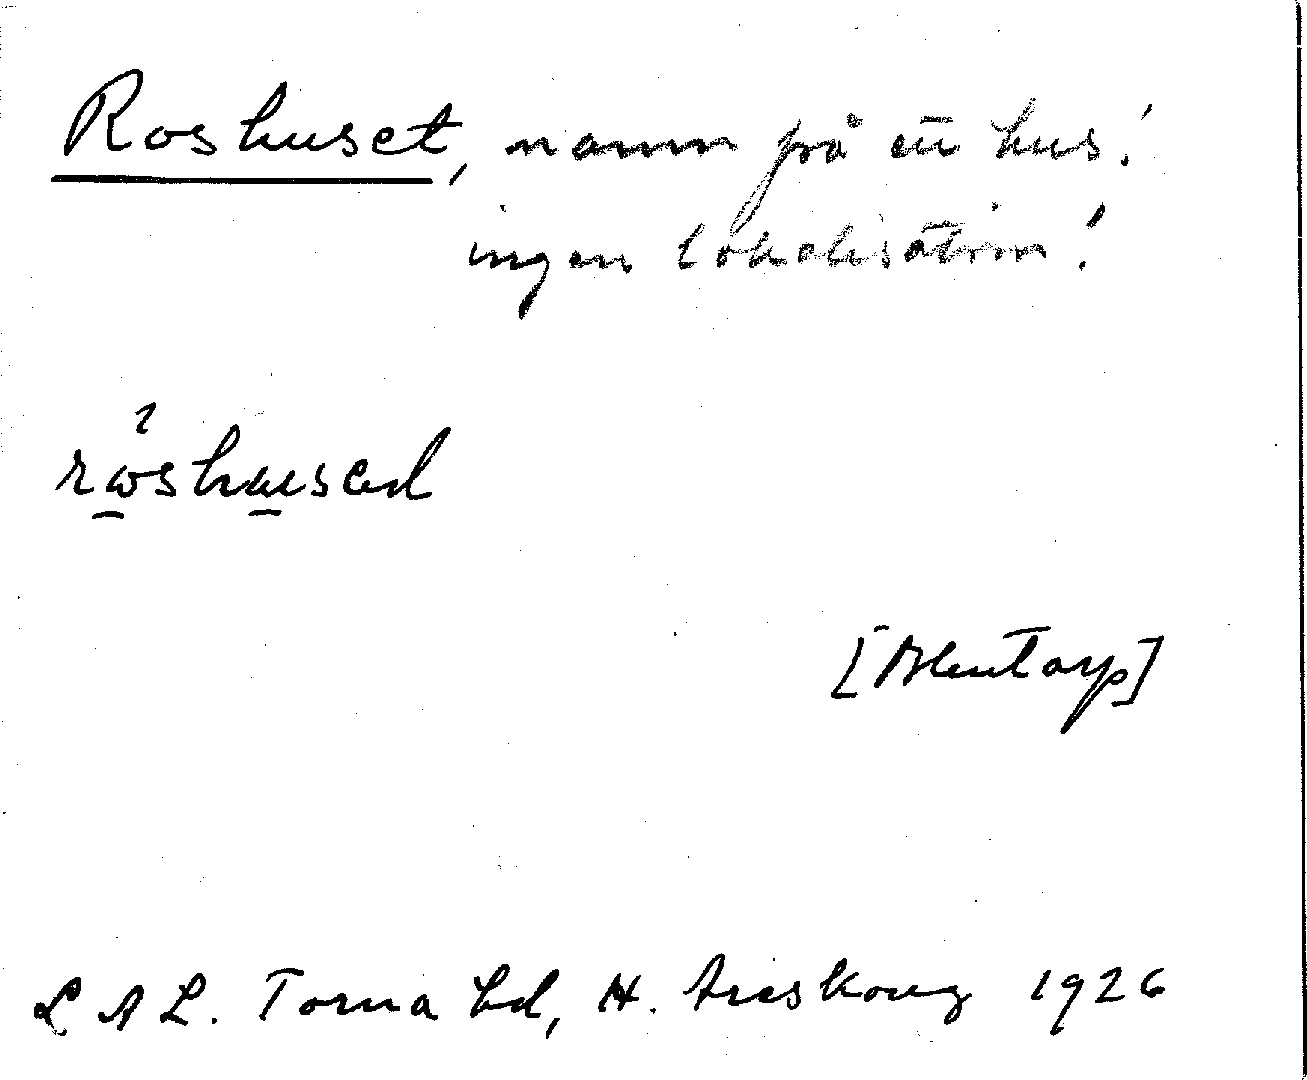 Roshuset, namn på ett hus!
ingen lokalisation!
[Blentarp]
L A L. Torna hd, H. Areskoug 1926